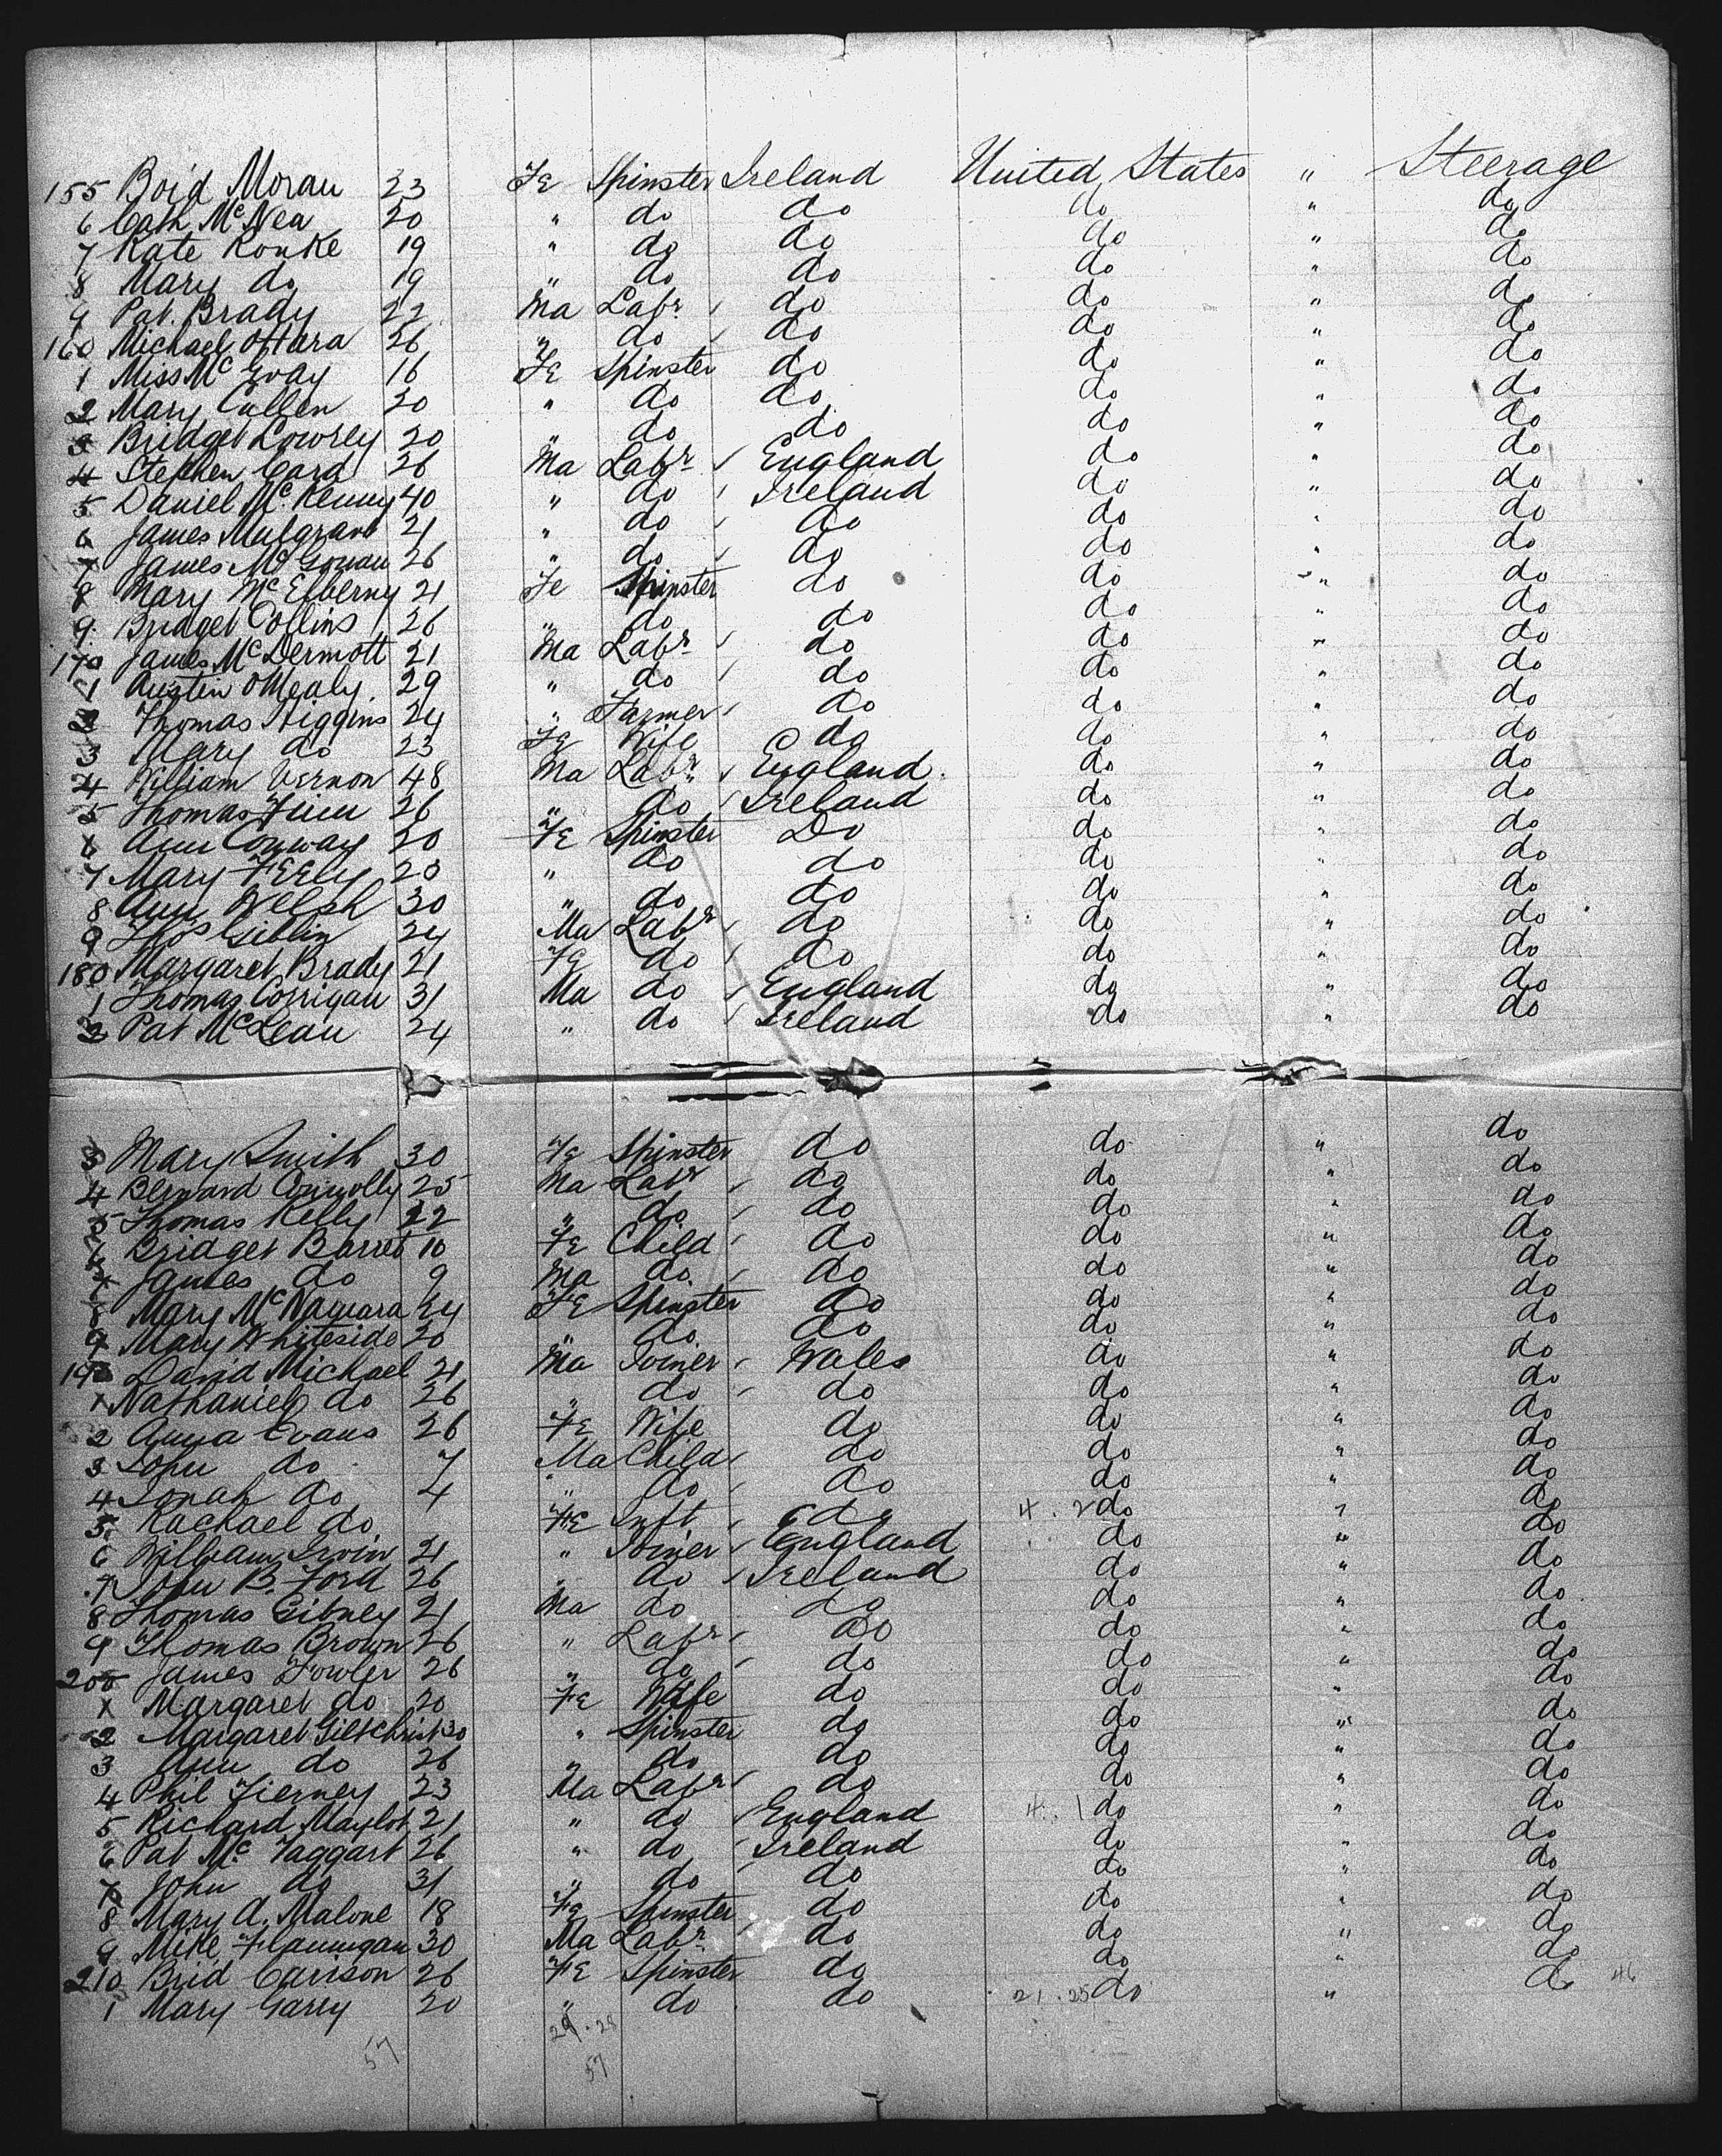 155 Brid Moran 23 Fe Spinster Ireland United States " Steerage
6 Cath McNea 20 " do do do " do
7 Kate Rourke 19 " do do do " do
8 Mary do 19 " do do do " do
9 Pat. Brady 22 Ma Labr do do " do
160 Michael O'Hara 26 " do do do " do
1 Miss McGoay 16 Fe Spinster do do " do
2 Mary Cullen 20 " do do do " do
3 Bridget Lowrey 20 " do do do " do
4 Stephen Card 26 Ma Labr England do " do
5 Daniel McKenny 40 " do Ireland do " do
6 James Mulgrave 21 " do do do " do
7 James McGowan 26 " do do do " do
8 Mary McElberny 21 Fe Spinster do do " do
9 Bridget Collins 26 " do do do " do
170 James McDermott 21 Ma Labr do do " do
1 Austin O'Mealy 29 " do do do " do
2 Thomas Higgins 24 " Farmer do do " do
3 Mary do 23 Fe Wife do do " do
4 William Vernon 48 Ma Labr England do " do
5 Thomas Finn 26 " do Ireland do " do
6 Ann Conway 20 Fe Spinster Do do " do
7 Mary Feely 20 " do do do " do
8 Ann Welsh 30 " do do do " do
9 Thos Giblin 24 Ma Labr do do " do
180 Margaret Brady 21 Fe do do do " do
1 Thomas Corrigan 31 Ma do England do " do
2 Pat McLean 24 " do Ireland do " do
3 Mary Smith 30 Fe Spinster do do " do
4 Bernard Connolly 25 Ma Labr do do " do
5 Thomas Kelly 22 " do do do " do
6 Bridget Barret 10 Fe Child do do " do
7 James do 9 Ma do do do " do
8 Mary McNamara 24 Fe Spinster do do " do
9 Mary Whiteside 20 " do do do " do
190 David Michael 21 Ma Joiner Wales do " do
1 Nathaniel do 26 " do do do " do
2 Anna Evans 26 Fe Wife do do " do
3 John do 7 Ma Child do do " do
4 Jonah do 4 " do do do " do
5 Rachael do Fe Inft do 4 . 2 do " do
6 William Irvin 21 " Joiner England do " do
7 John B. Ford 26 " do Ireland do " do
8 Thomas Gibney 21 Ma do do do " do
9 Thomas Brown 26 " Labr do do " do
200 James Fowler 26 " do do do " do
1 Margaret do 20 Fe Wife do do " do
2 Margaret Gilschrist 30 " Spinster do do " do
3 Ann do 26 " do do do " do
4 Phil Tierney 23 Ma Labr do do " do
5 Richard Maylot 21 " do England 4 . 1 do " do
6 Pat McTaggart 26 " do Ireland do " do
7 John do 31 " do do do " do
8 Mary A. Malone 18 Fe Spinster do do " do
9 Mike Flannigan 30 Ma Labr do do " do
210 Brid Carrson 26 Fe Spinster do do " do
1 Mary Garry 20 " do do 21 . 25 do " do 46
29 . 28
57 57